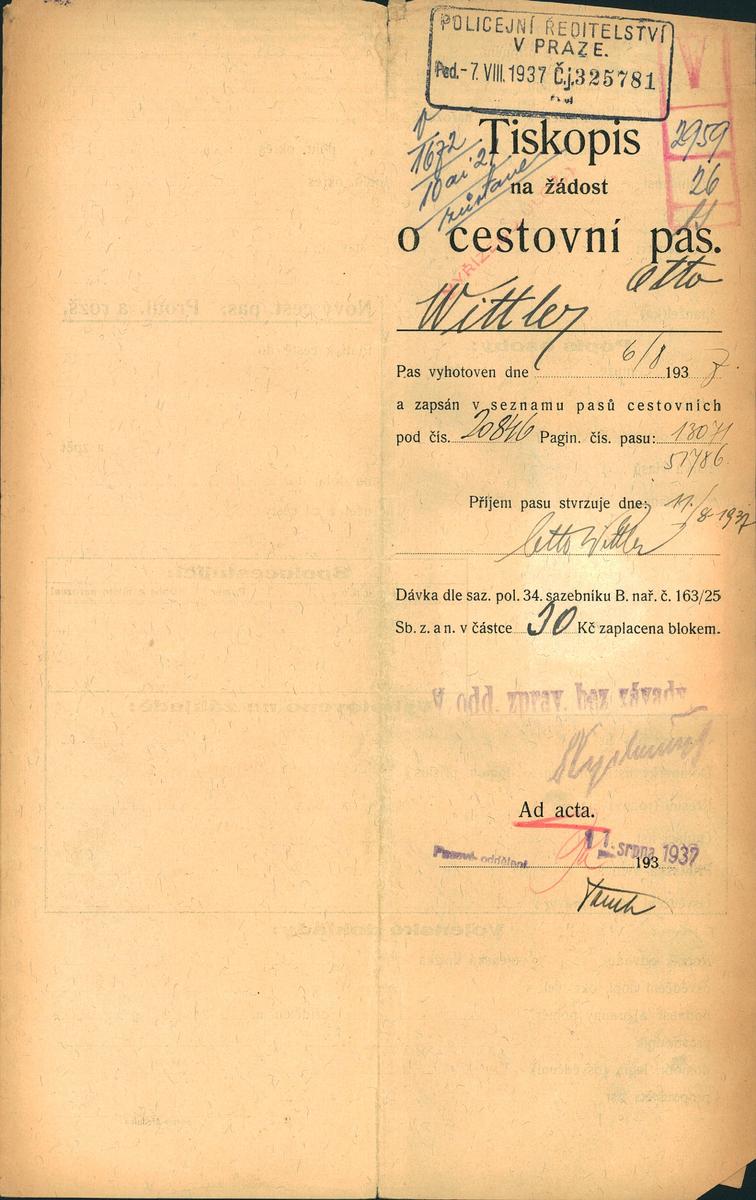 POLICEJNÍ ŘEDITELSTVÍ
V PRAZE.
Pod. -7. VIII. 1937 Č.j. 325781
V
1672
2959
26
Tiskopis
na žádost
o cestovní pas.
Otto
Wittler
Pas vyhotoven dne 6/8 1937
a zapsán v seznamu pasů cestovních
pod čís. 20846 Pagin. čís. pasu: 13071
51786
Příjem pasu stvrzuje dne: 11/8 1937
Otto Wittler
Dávka dle saz. pol. 34. sazebníku B. nař. č. 163/25
Sb. z. a n. v částce 30 Kč zaplacena blokem.
V odd. zprav. bez závady
Ad acta.
11. srpna 1937
Pasové oddělení 193